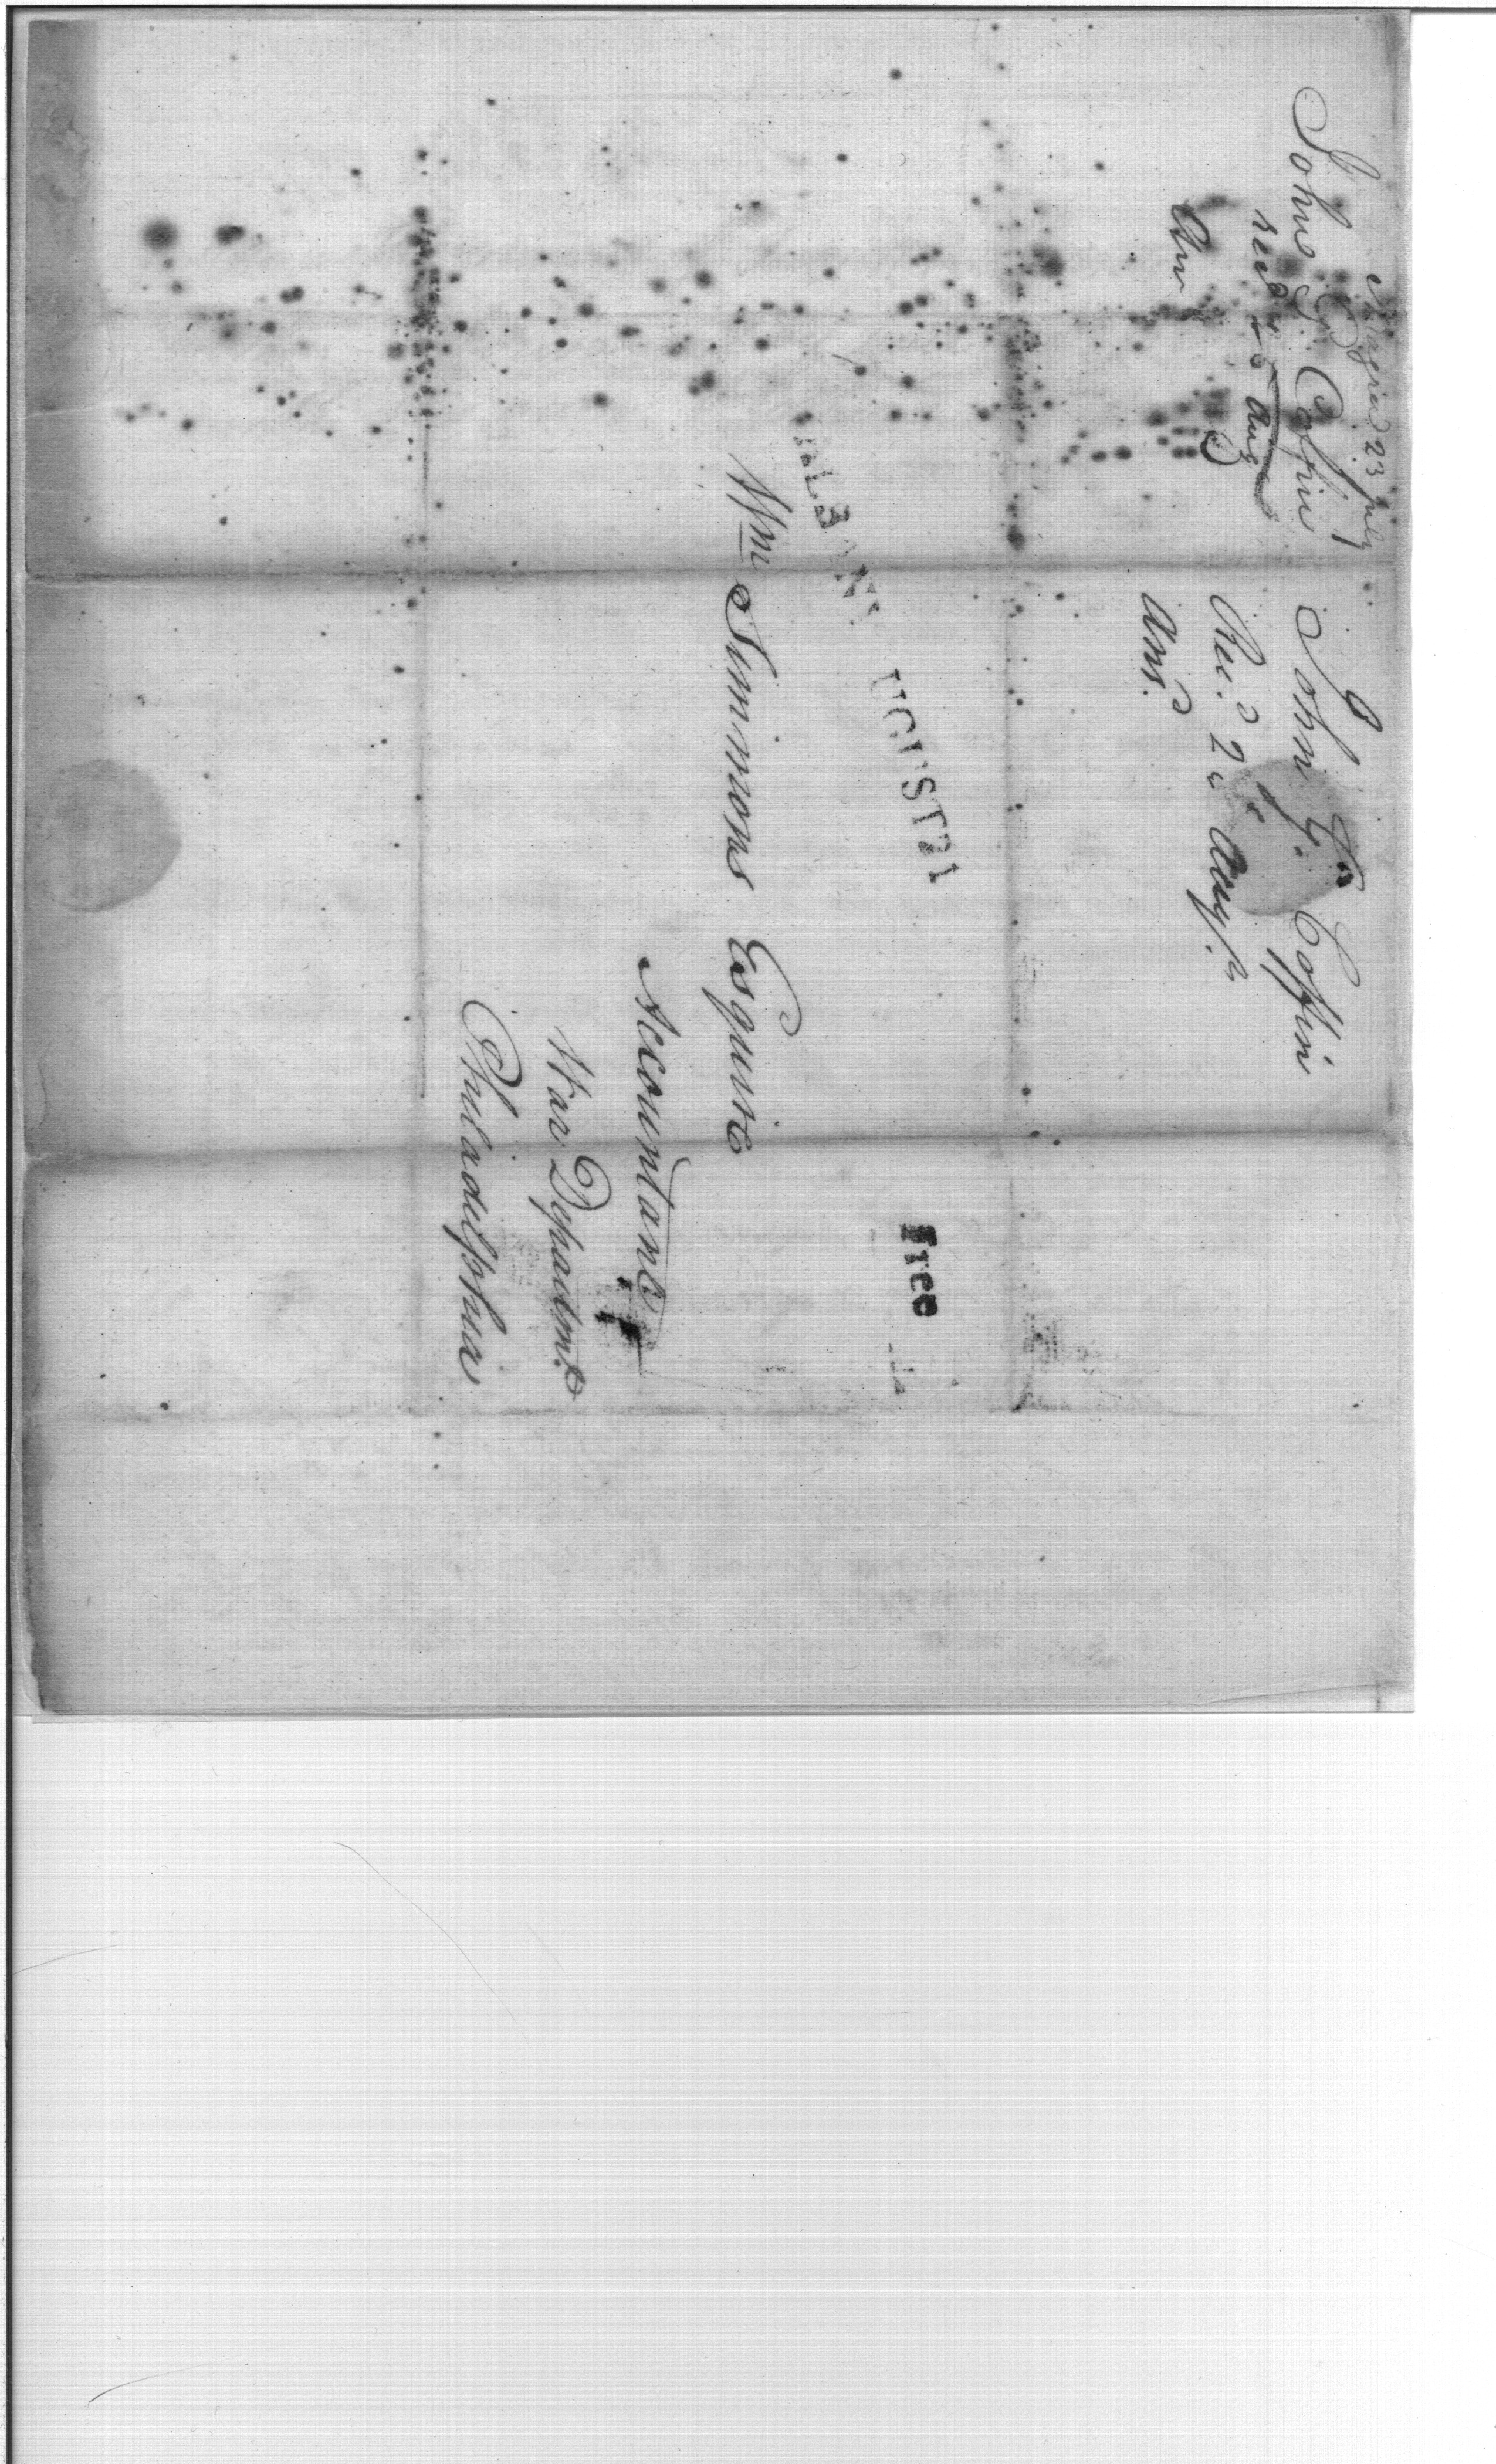 Niagara 23 July
John G. Coffin
recd 25 Aug
Anr
John G. Coffin
Rec.d 2 Augt.
Ans.d
ALBANY AUGUST 21
Free
Wm Simmons Esquire
Accountant
War Departmt
Philadelphia